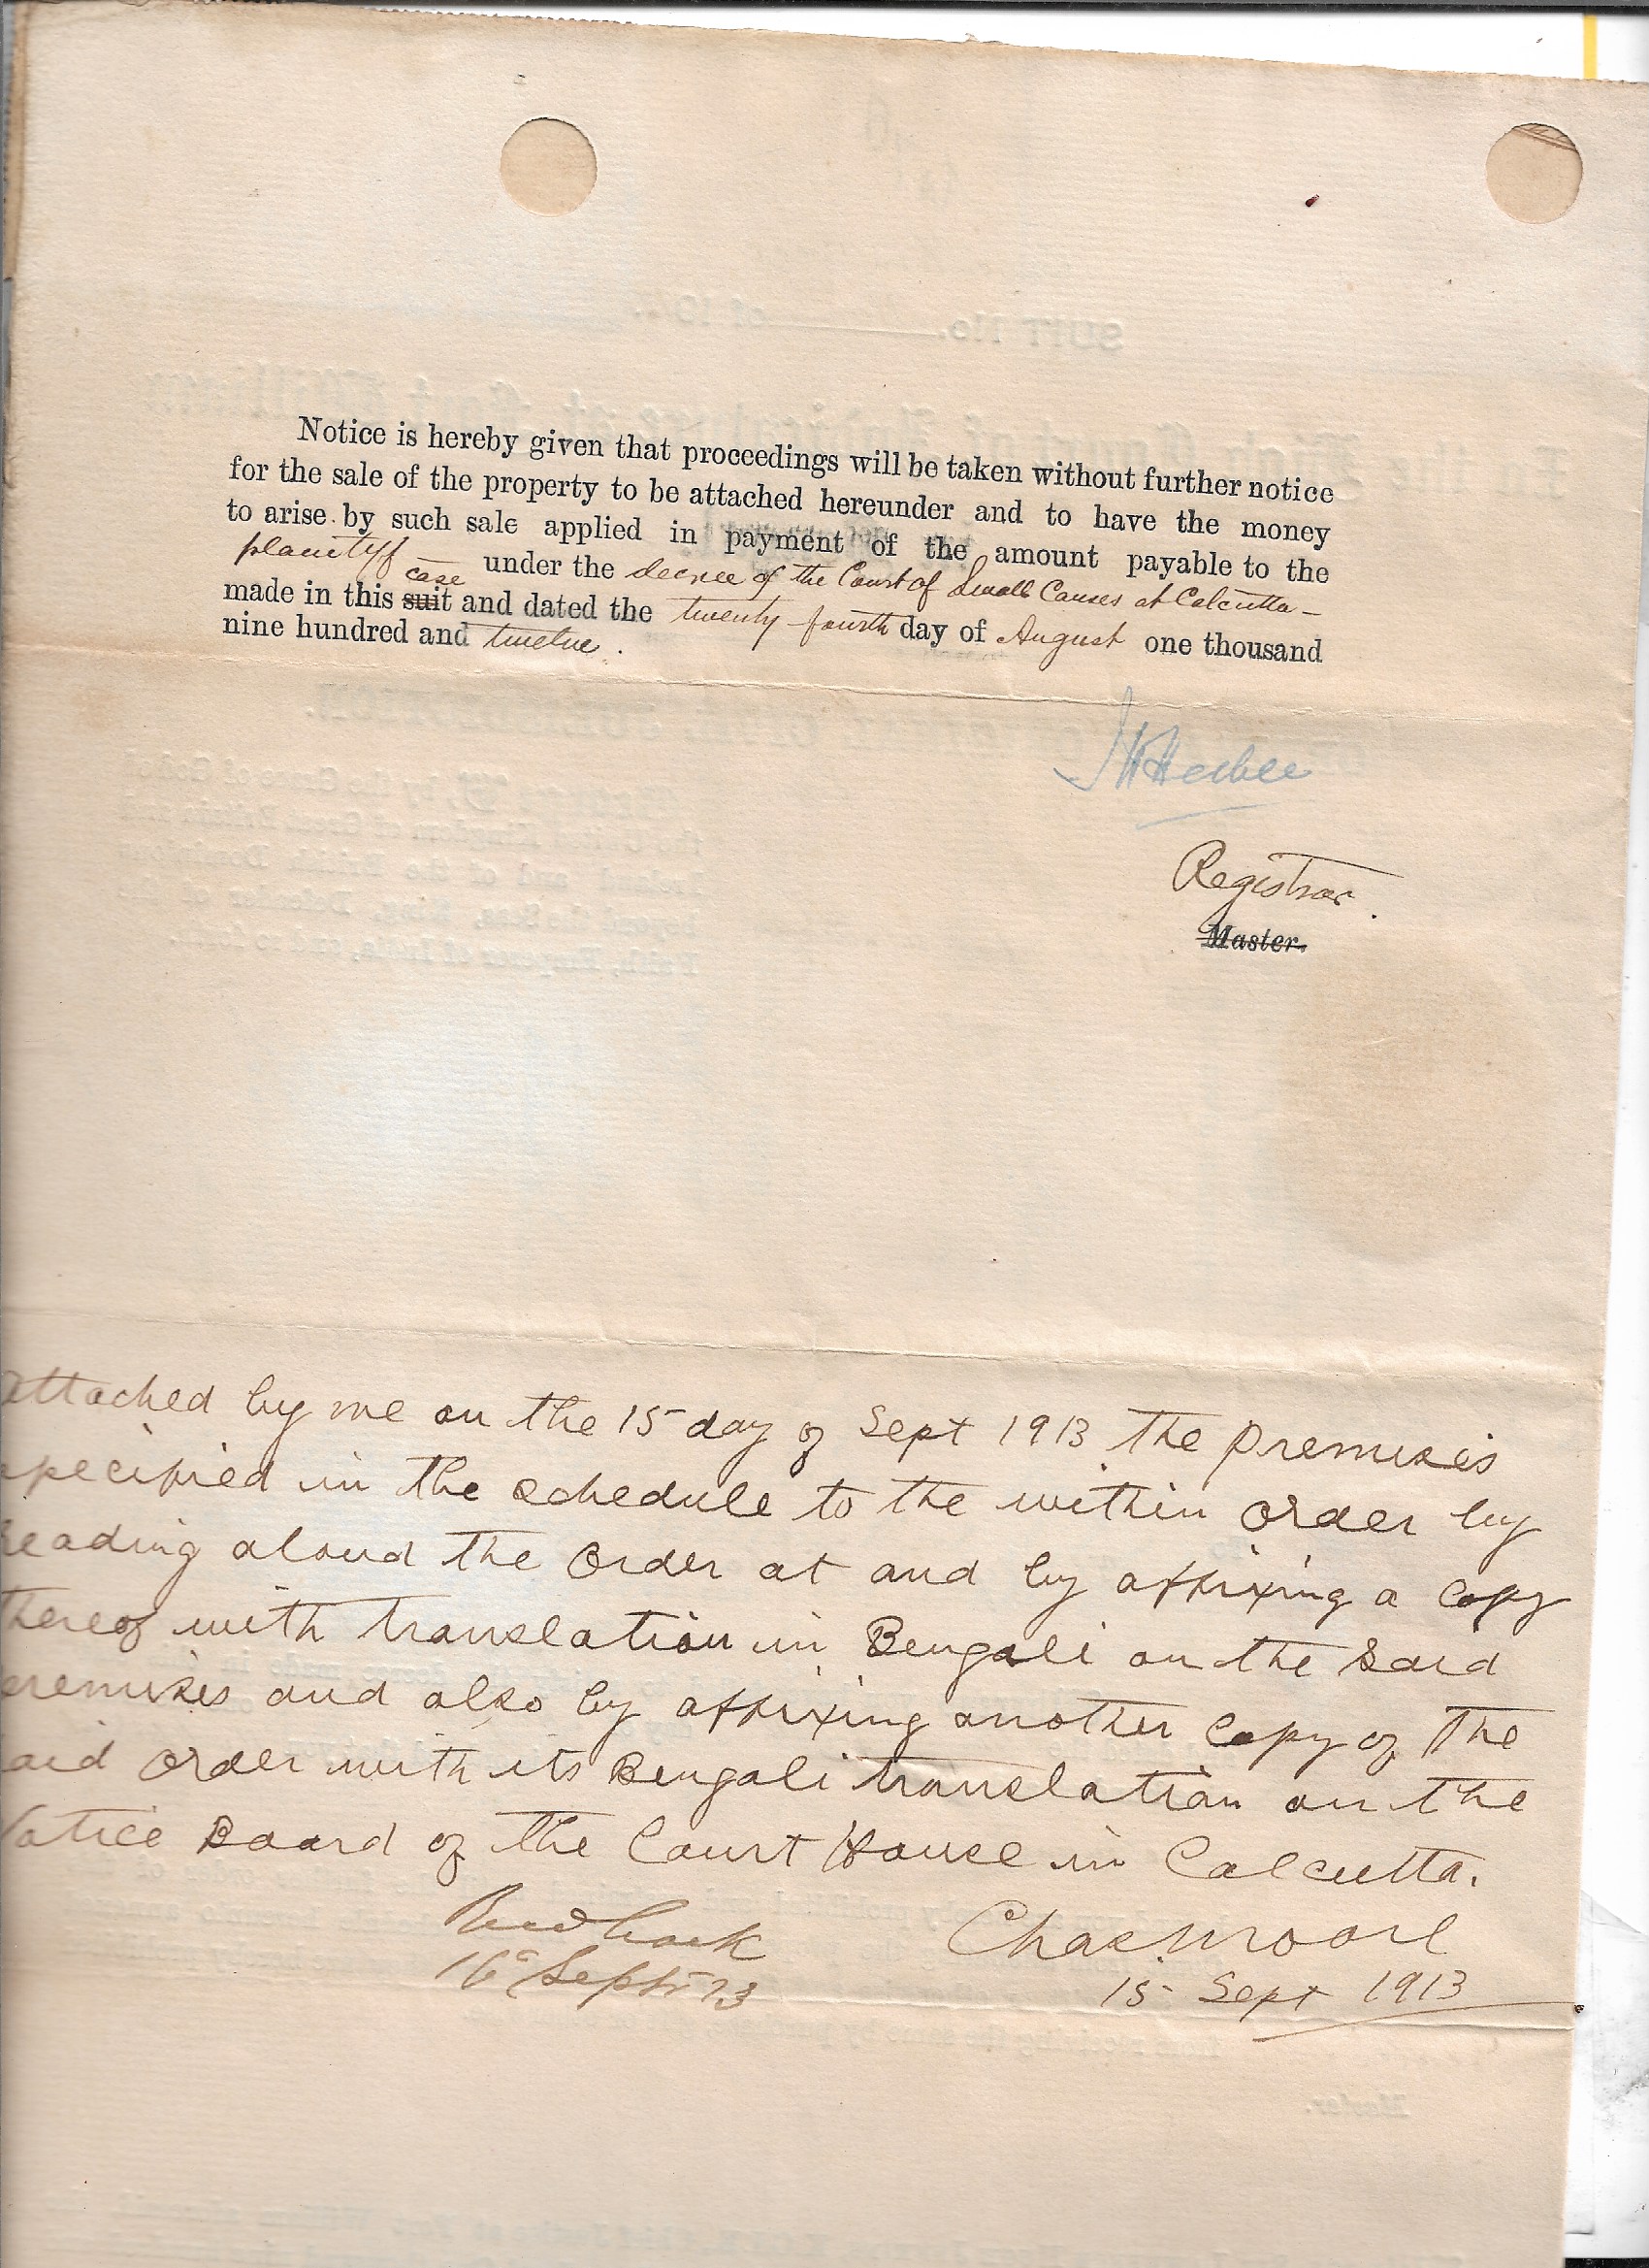 Notice is hereby given that proceedings will be taken without further notice
for the sale of the property to be attached hereunder and to have the money
to arise by such sale applied in payment of the amount payable to the
plaintiff under the decree of the Court of Small Causes at Calcutta
made in this suit case and dated the twenty fourth day of August one thousand
nine hundred and twelve.
Registrar.
Master.
attached by me on the 15 day of Sept 1913 the premises
specified in the schedule to the within order by
reading aloud the Order at and by affixing a Copy
thereof with translation in Bengali on the said
premises and also by affixing another Copy of the
said Order with its Bengali translation on the
Notice Board of the Court House in Calcutta.
Chas Moore
15 Sept 1913